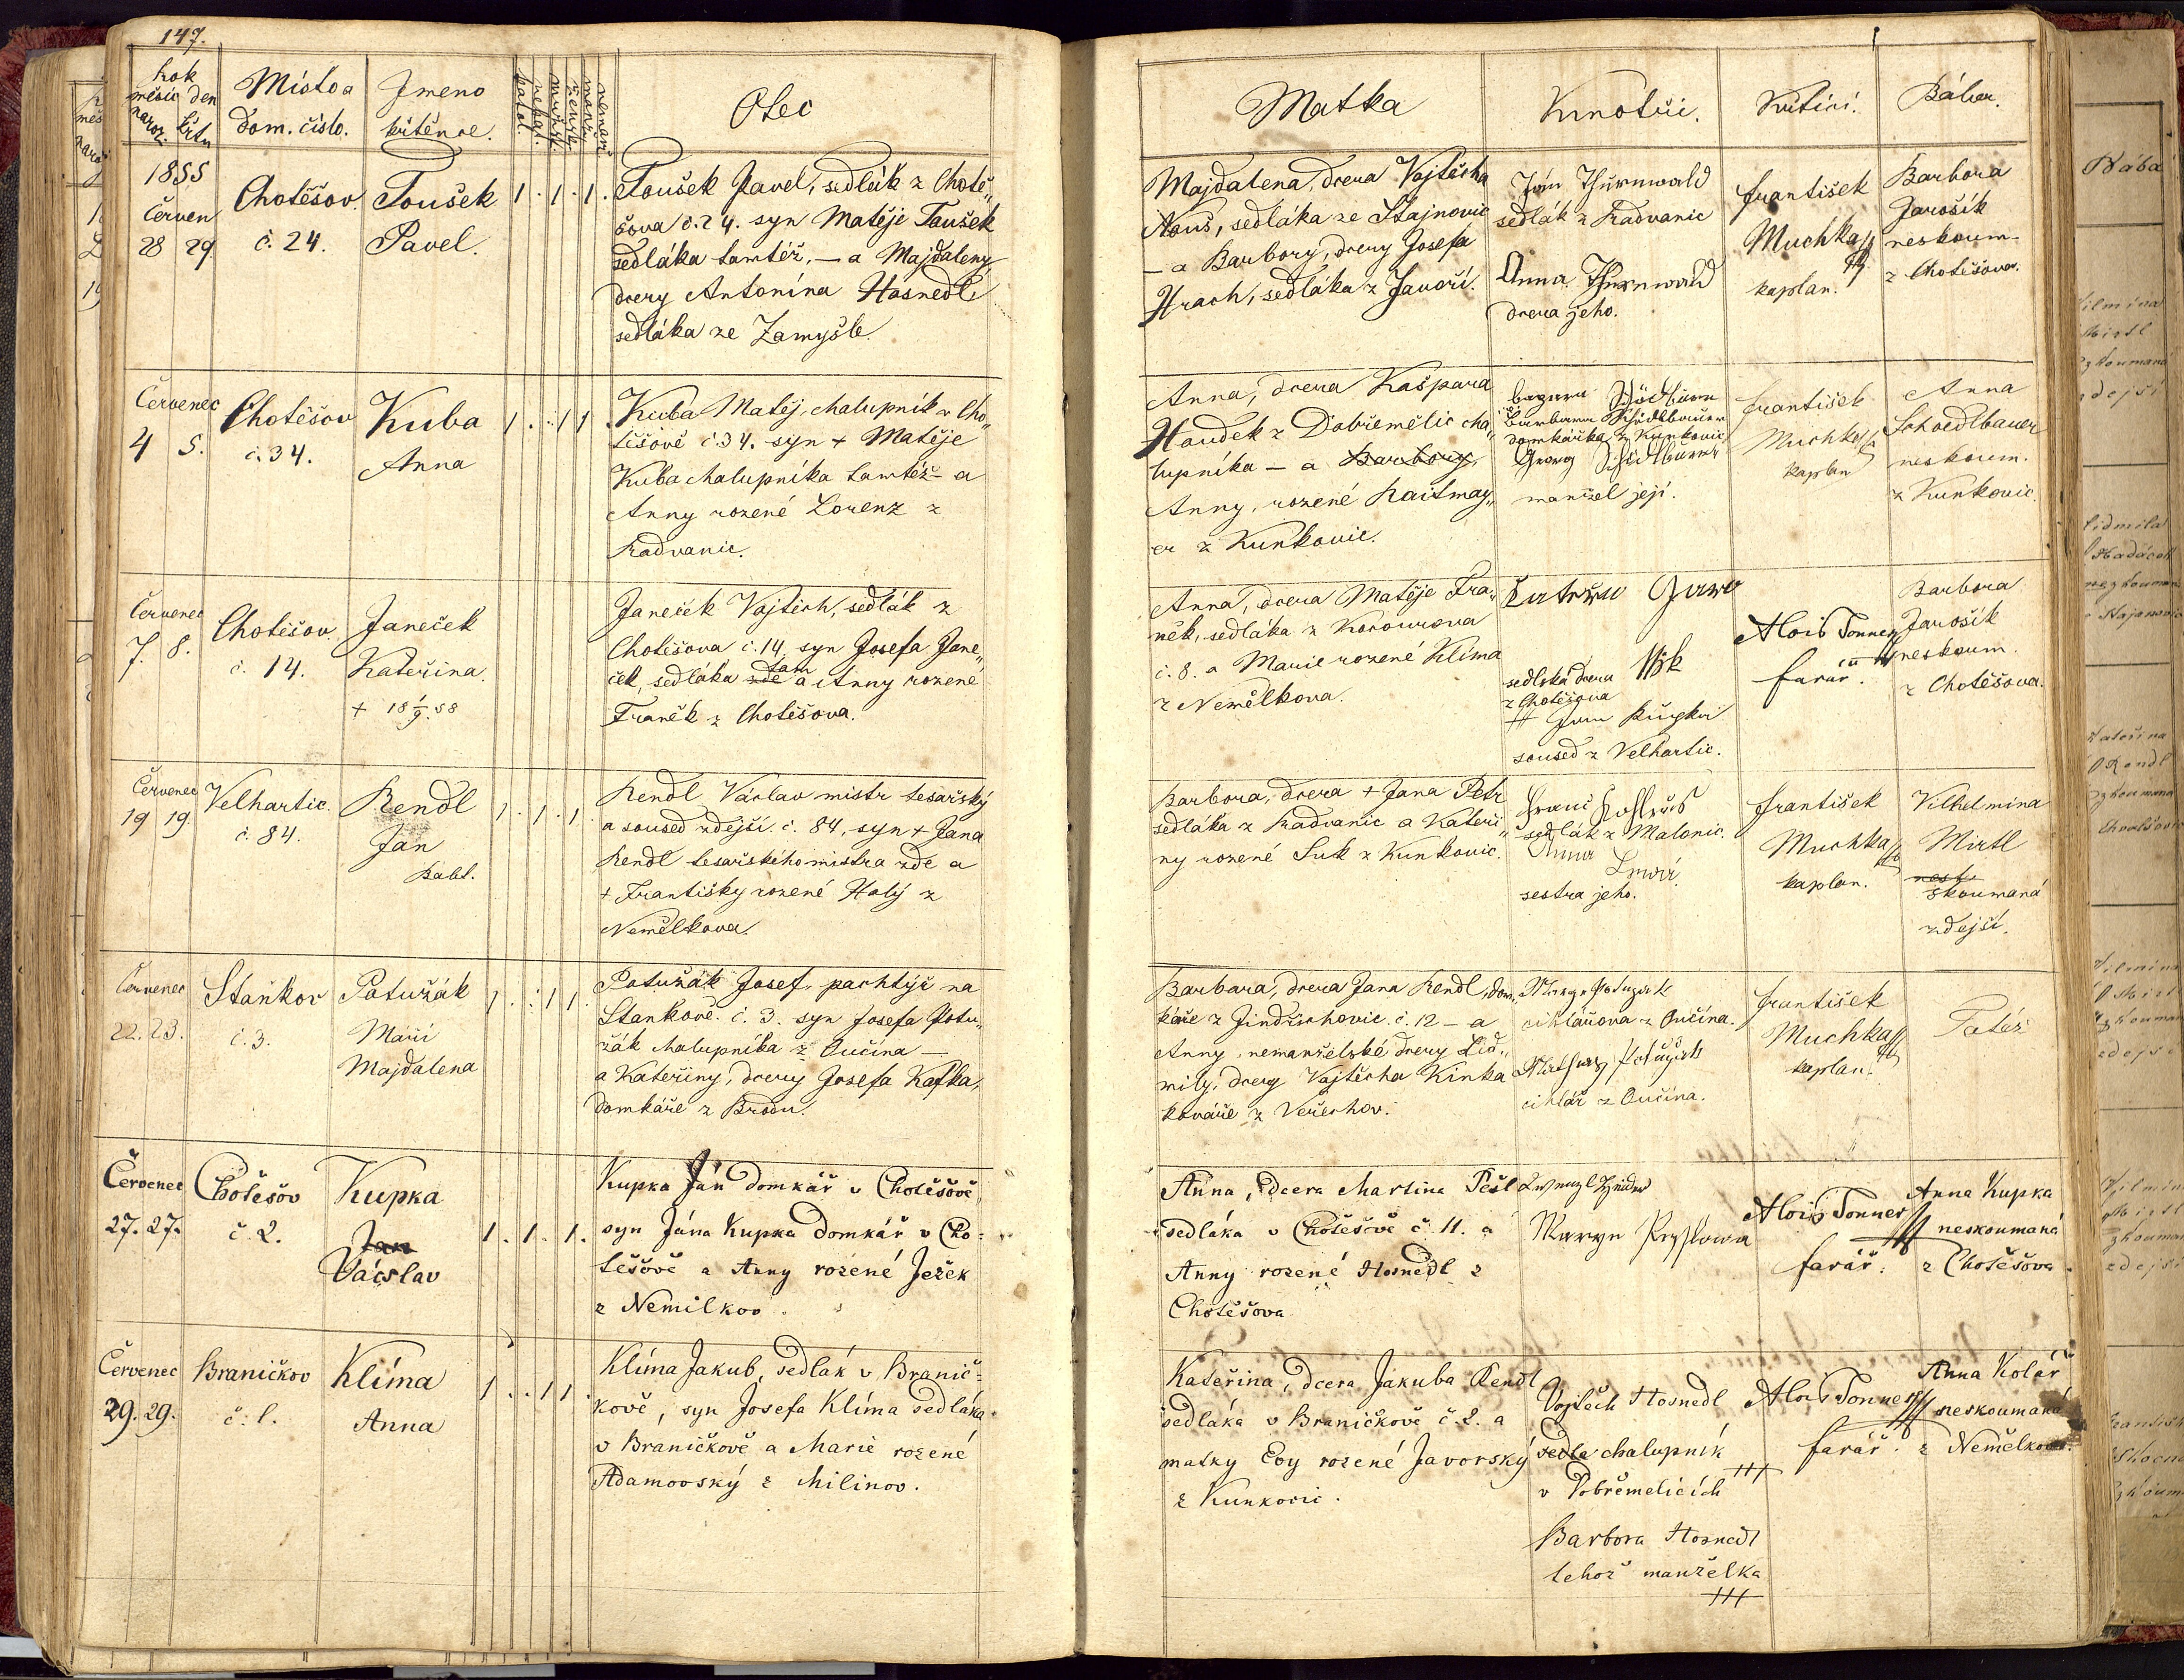 147.
Rok
měsíc den
naroz. křtu
Místo a
dom. číslo.
Jmeno
křtěnce.
katol.
nekat.
mužsk.
žensk.
manž.
nemanž.
Otec
1855
Červen
28 29.
Chotěšov
č. 24.
Toušek
Pavel.
1. 1. 1.
Toušek Pavel, sedlák z Chotě„
šova č. 24. syn Matěje Toušek
sedláka tamtéž, — a Majdaleny
dcery Antonína Hosnedl
sedláka ze Zamyšle.
Červenec
4 5.
Chotěšov
č. 34.
Kuba
Anna
1. 1 1.
Kuba Matěj, chalupník v Cho„
těšově č 34. syn + Matěje
Kuba chalupníka tamtéž - a
Anny rozené Lorenz z
Radvanic.
Červenec
7. 8.
Chotěšov.
č. 14.
Janeček
Kateřina.
+ 18 1/9. 58
Janeček Vojtěch, sedlák z
Chotěšova č. 14, syn Josefa Jane„
ček, sedláka zde tam a Anny rozené
Franěk z Chotěšova.
Červenec
19 19.
Velhartic.
č. 84.
Rendl
Jan
Babt.
1. 1. 1.
Rendl Václav mistr tesařský
a soused zdejší č. 84, syn + Jana
Rendl tesařského mistra zde a
+ Františky rozené Holý z
Nemělkova.
Červenec
22. 23.
Staňkov
č. 3.
Potužák
Maří
Majdalena
1. 1 1
Potužák Josef, pachtýř na
Stankově. č. 3. syn Josefa Potu„
žák chalupníka z Oučína —
a Kateřiny, dcery Josefa Kafka,
domkáře z Brodu.
Červenec
27. 27.
Chotěšov
č. 2.
Kupka
Jan
Vácslav
1. 1. 1.
Kupka Ján domkář v Chotěšově,
syn Jána Kupka domkář v Cho=
těšově a Anny rozené Ježek
z Nemilkov.
Červenec
29. 29.
Braničkov
č. 1.
Klíma
Anna
1. . 1 1.
Klíma Jakub, sedlák v Branič=
kově, syn Josefa Klíma sedláka
v Braničkově a Marie rozené
Adamovský z Milinov.
Matka
Kmotři.
Křtící.
Bába.
Majdalena, dcera Vojtěcha
Kouš, sedláka ze Stajnovic
— a Barbory, dcery Josefa
Hrach, sedláka z Javoří.
Ján Thurnwald
sedlák z Radvanic
Anna Thurnwald
dcera jeho.
František
Muchka
kaplan.
Barbora
Jarošík
neskoum-
z Chotěšova.
Anna, dcera Kašpara
Houdek z Dobřemělic cha„
lupníka — a Barbory,
Anny, rozené Raitmay„
er z Kunkovic.
Barbara Schödlbauer
domkářka z Kunkovic
Georg Schödlbauer
manžel její.
František
Muchka
kaplan
Anna
Schoedlbauer
neskoum.
z Kunkovic.
Anna, dcera Matěje Fra„
něk, sedláka z
č. 8. a Marie rozené Klíma
z Nemělkova.
sedlská dcera
z Chotěšova
soused z Velhartic.
Alois Tonner
farář.
Barbora
Jarošík
neskoum.
z Chotěšova.
Barbora, dcera + Jana Petr
sedláka z Radvanic a Kateři„
ny rozené Suk z Kunkovic.
sedlák z Malonic.
Anna
sestra jeho.
František
Muchka
kaplan.
Vilhelmina
Mirtl
zkoumaná
zdejší.
Barbara, dcera Jana Rendl, dom„
káře z Jindřichovic. č. 12 — a
Anny, nemanželské dcery Lid„
mily, dcery Vojtěcha Kinka
kováře z
cihlářova z Oučína.
cihlář z Oučína.
František
Muchka
kaplan.
Tatéž
Anna, dcera Martina Pešl
sedláka v Chotěšově č. 11. a
Anny rozené Hosnedl z
Chotěšova
Alois Tonner
farář.
Anna Kupka
neskoumaná
z Chotěšova.
Kateřina, dcera Jakuba Rendl
sedláka v Braničkově č. 2. a
matky Evy rozené Javorský
z Kunkovic.
Vojtěch Hosnedl
chalupník
v Dobřemelicích
+++
Barbora Hosnedl
tehož manželka
+++
Alois Tonner
farář.
Anna Kolář
neskoumaná
z Nemělkova.
Bába